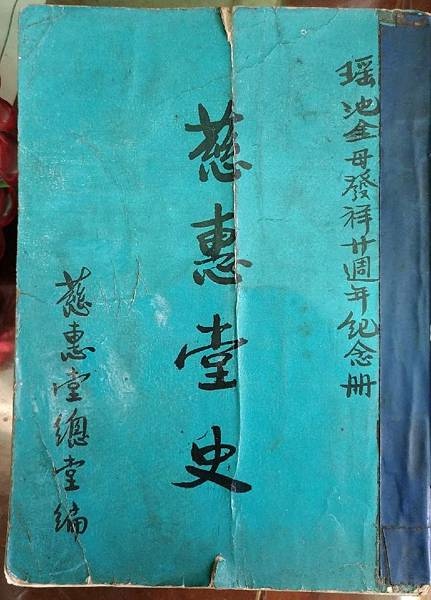 瑶池金母發祥廿週年紀念册
慈惠堂史
慈惠堂總堂編